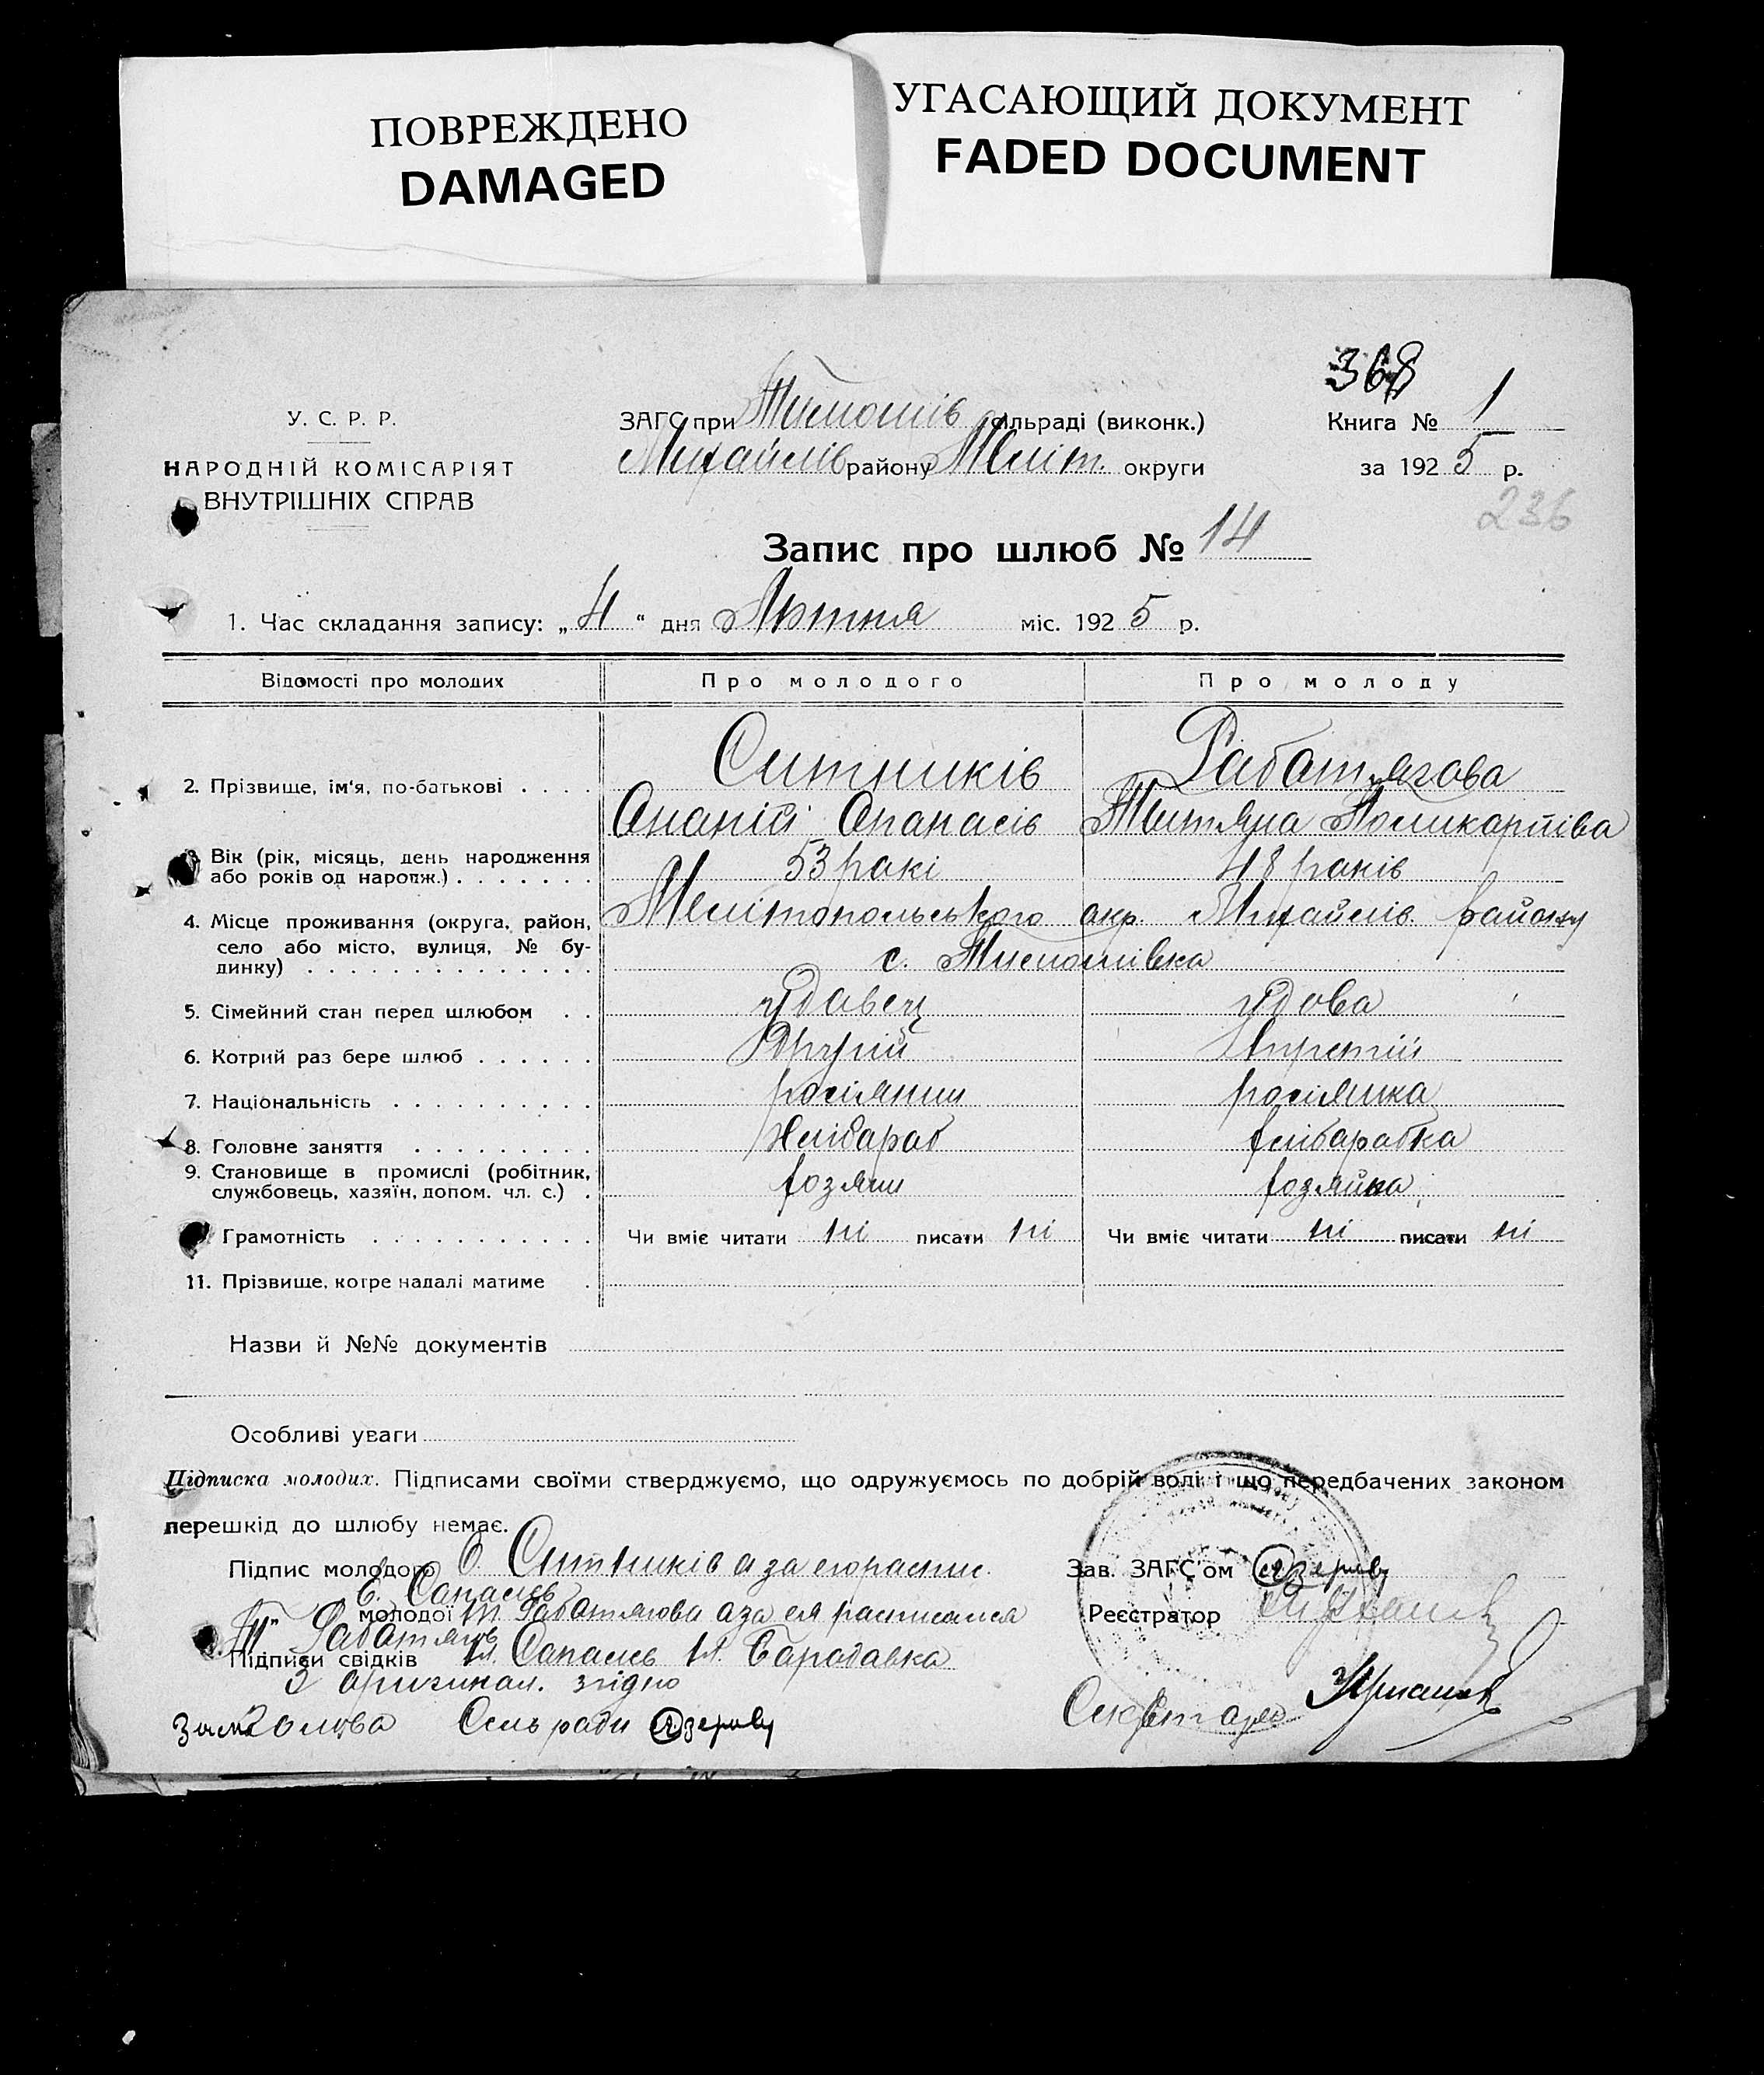 ПОВРЕЖДЕНО
DAMAGED
УГАСАЮЩИЙ ДОКУМЕНТ
FADED DOCUMENT
368
У. С. Р. Р.
НАРОДНІЙ КОМІСАРІЯТ
ВНУТРІШНІХ СПРАВ
ЗАГС при Тимошів сільраді (виконк.)
Михайлів району Меліт. округи
Книга № 1
за 1925 р.
236
Запис про шлюб № 14
1. Час складання запису: „4" дня Лютня міс. 1925 р.
Відомості про молодих Про молодого Про молоду
2. Прізвище, ім'я, по-батькові . . . . Ситників Рабатягова
Ананій Апанасів Титяна Поликарпіва
Вік (рік, місяць, день народження або років од народж.) . . . . . . . 53 ракі 48 раків
4. Місце проживання (округа, район, село або місто, вулиця, № будинку) . . . . . . . . . . . . . Мелітопольського окр. Михайлів. району
с. Тимошівка
5. Сімейний стан перед шлюбом . . удавец удова
6. Котрий раз бере шлюб . . . . . . Другий Втретій
7. Національність . . . . . . . . . . росіянин росіянка
8. Головне заняття . . . . . . . . . Хлібараб хлібарабка
9. Становище в промислі (робітник, службовець, хазяїн, допом. чл. с.) . хозяин хозяйка
Грамотність . . . . . . . . . . . Чи вміє читати ні писати ні Чи вміє читати ні писати ні
11. Прізвище, котре надалі матиме .
Назви й №№ документів
Особливі уваги
Підписка молодих. Підписами своїми стверджуємо, що одружуємось по добрій волі і що передбачених законом
перешкід до шлюбу немає.
Підпис молодого О. Ситників а за
Зав. ЗАГС'ом
молодої Т. Рабатягова аза ея расписался
Реєстратор
Підписи свідків Сапаців Барадавка
З оригинал. згідно
Зам Голова Сель ради
Секретарь